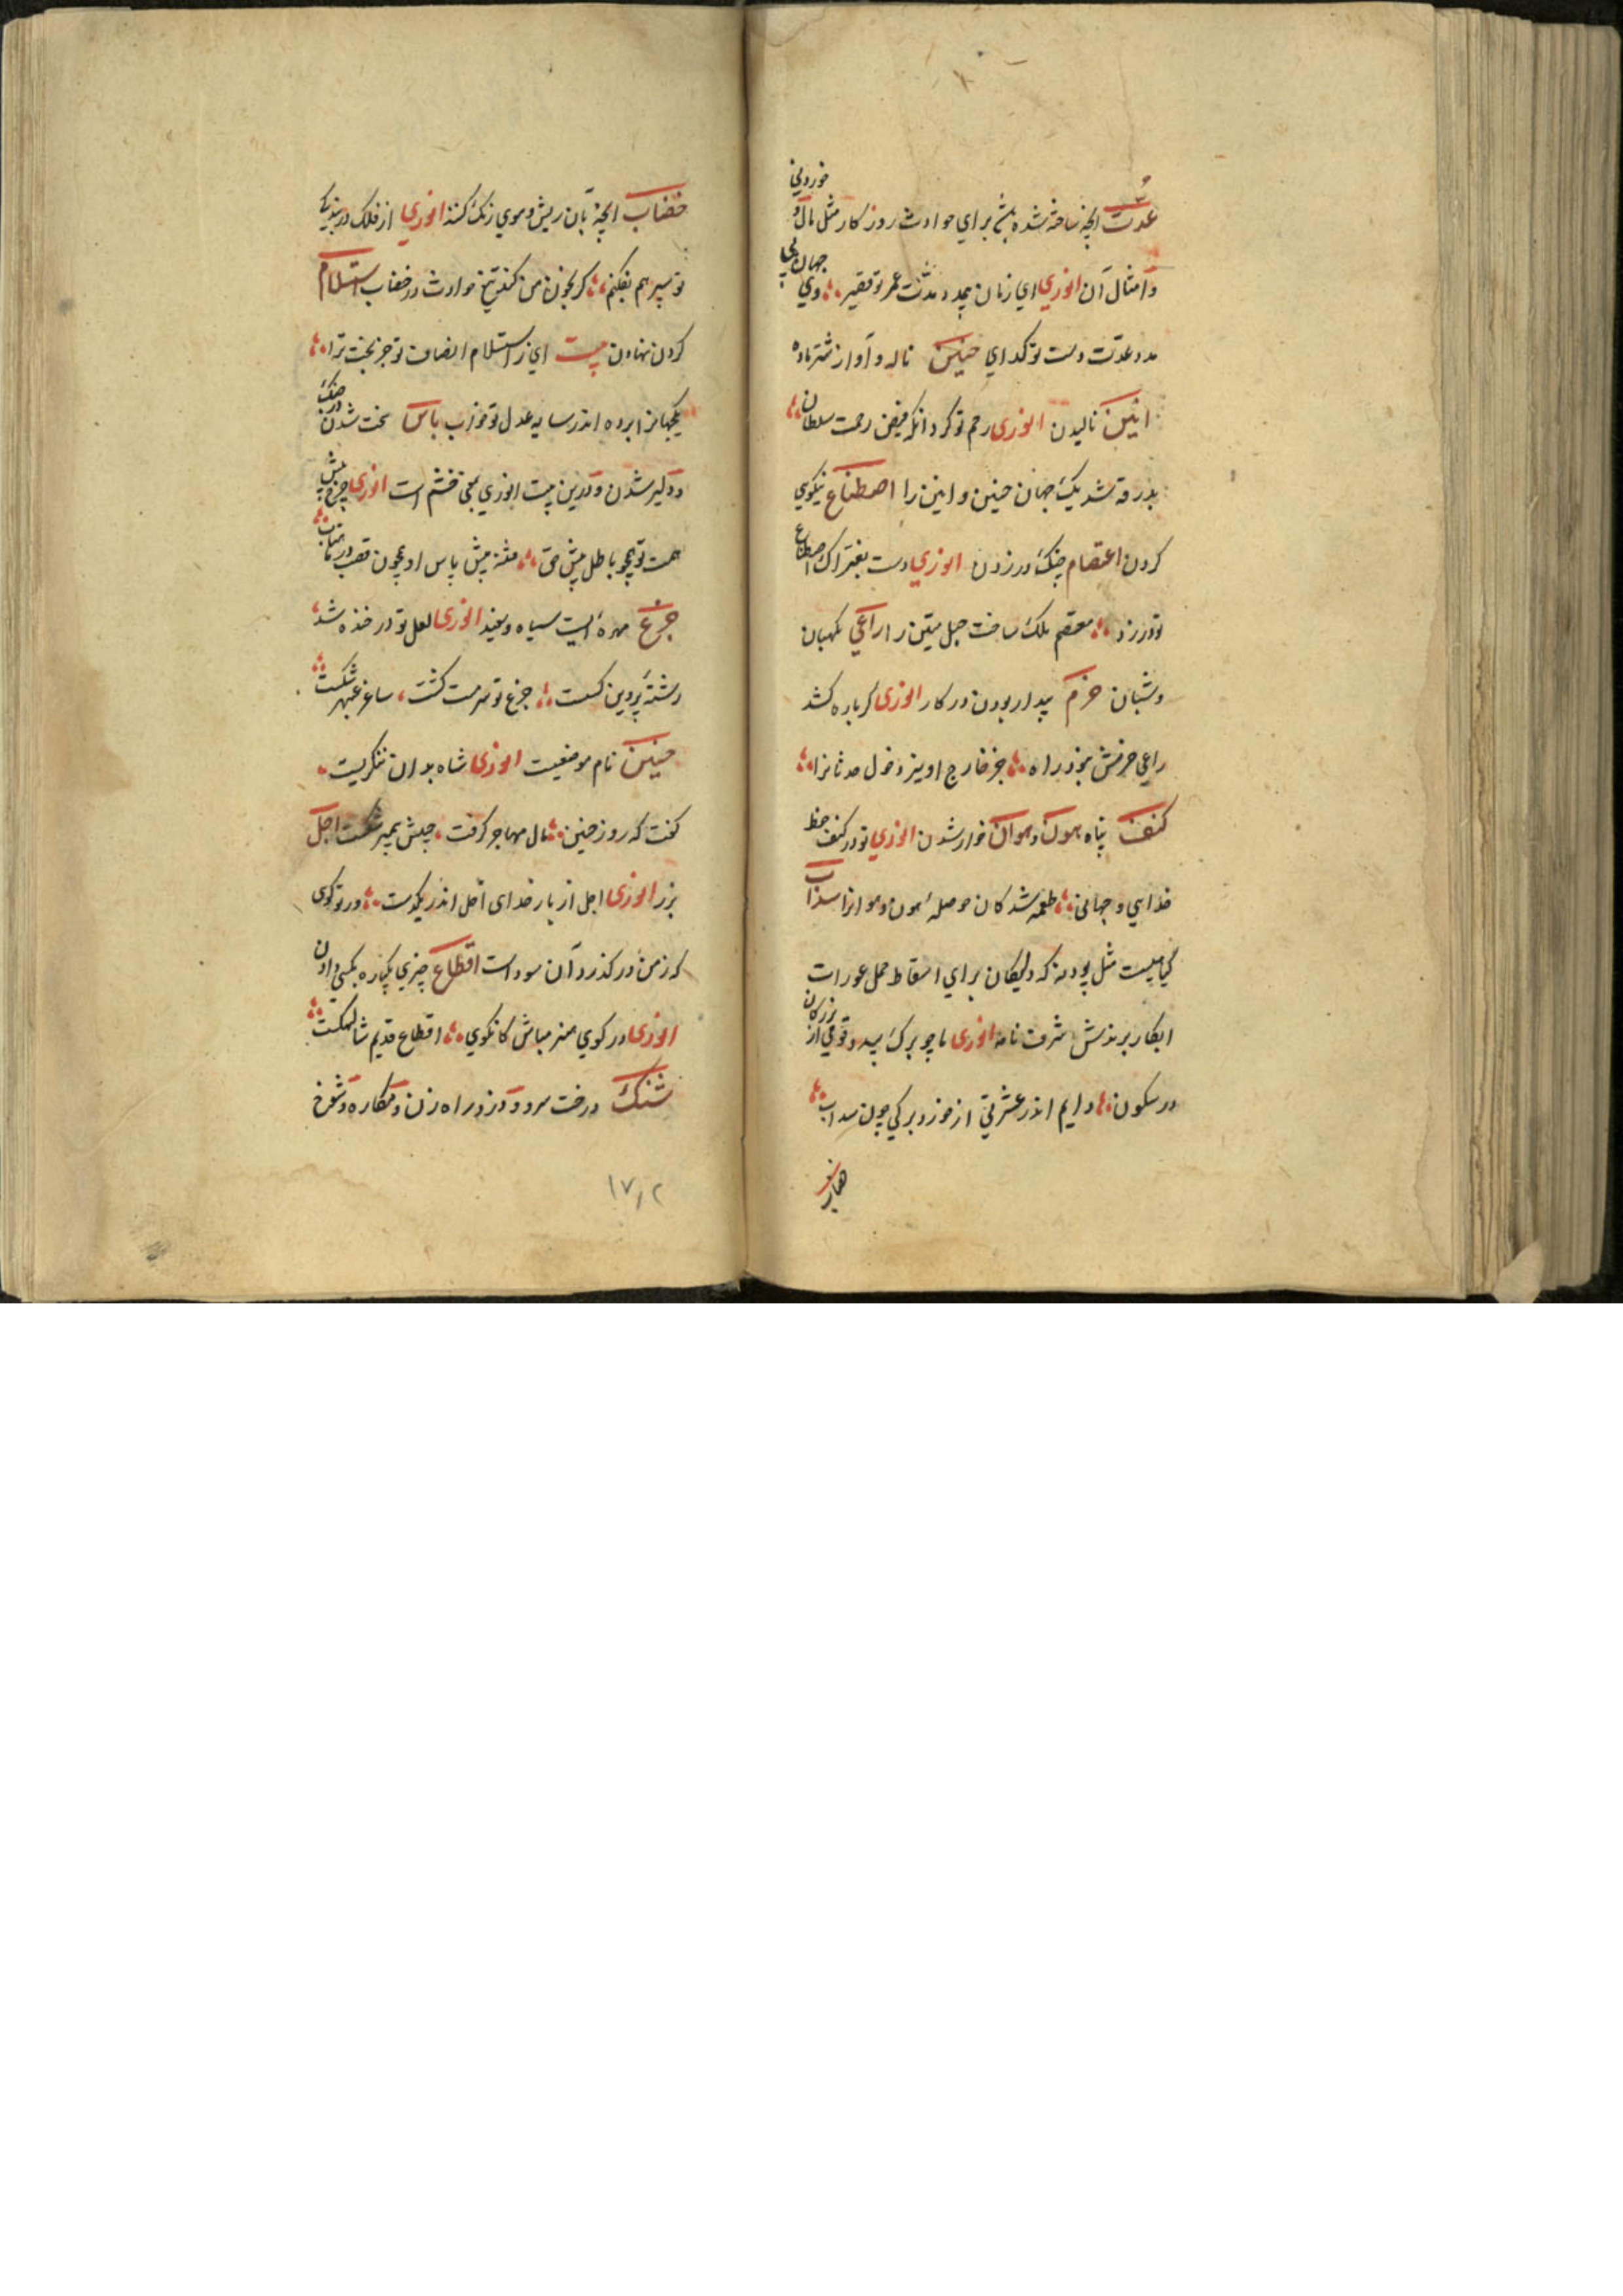 عدت انچه ساخته شده باشد برای حوادث روزگار مثل مال و خوردنی
و امثال آن انوری ای زمان بی عدد مدت عمر تو قصیر وی جهان بی
مدد عدت دست تو گدای حنین ناله و آواز شتر ماده
انین نالیدن انوری رحم تو کرد آنکه فیض رحمت سلطان
بدرقه شد یک جهان حنین و انین را اصطناع نیکوی
کردن اعتصام چنگ در زدن انوری دست بفتراک اصطناع
تو در زد معتصم ملک ساخت حبل متین را راعی نگهبان
و شبان حزم بیدار بودن در کار انوری گر باره کشد
راعی حزمش نبود راه جز خارج او نیز دخول حدثان را
کنف پناه هون و هوان خوار شدن انوری تو در کنف حفظ
خدایی و جهانی طعمه شدگان حوصله هون و هوان را سداب
گیاهیست مثل پودنه که دلیکان برای اسقاط حمل عورات
ابکار برندش شرف نامه انوری ما چو برک بید و قومی از بزرگان
در سکون دایم اندر عشرتی از خورد برکی چون سداب
خضاب انچه بآن ریش و موی رنگ کنند انوری از فلک در بندگی
تو سپر هم نفکنم گر بخون من کند تیغ حوادث در خضاب استلام
گردن نهادن بیت ای ز استلام انصاف تو جز بخت ترا
یکجهان را برده اندر سایه عدل تو خواب باس سخت شدن در جنگ
و دلیر شدن و درین بیت انوری بمعنی خشم است انوری چرخ پیش
همت تو همچو باطل پیش حق فتنه پیش باس او همچون قصب در ماهتاب
جزع مهره ایست سیاه و سفید انوری لعل تو در خنده شد
رشته پروین گسست جزع تو سرمست گشت ساغر عبهر شکست
حنین نام موضعیست انوری شاه بدان ننگریست
گفت که روز حنین مال مهاجر گرفت جیش پیمبر شکست اجل
بزر انوری اجل از بار خدای اجل اندر نگذشت در تو گوی
که ز من در گذرد آن سوداست اقطاع چیزی یکباره بکسی دادن
انوری در کوی هنر مباش کان کوی اقطاع قدیم شالهنگست
شنک درخت سرو و دزد و راه زن و مکاره و شوخ
هبا
۱۷۲